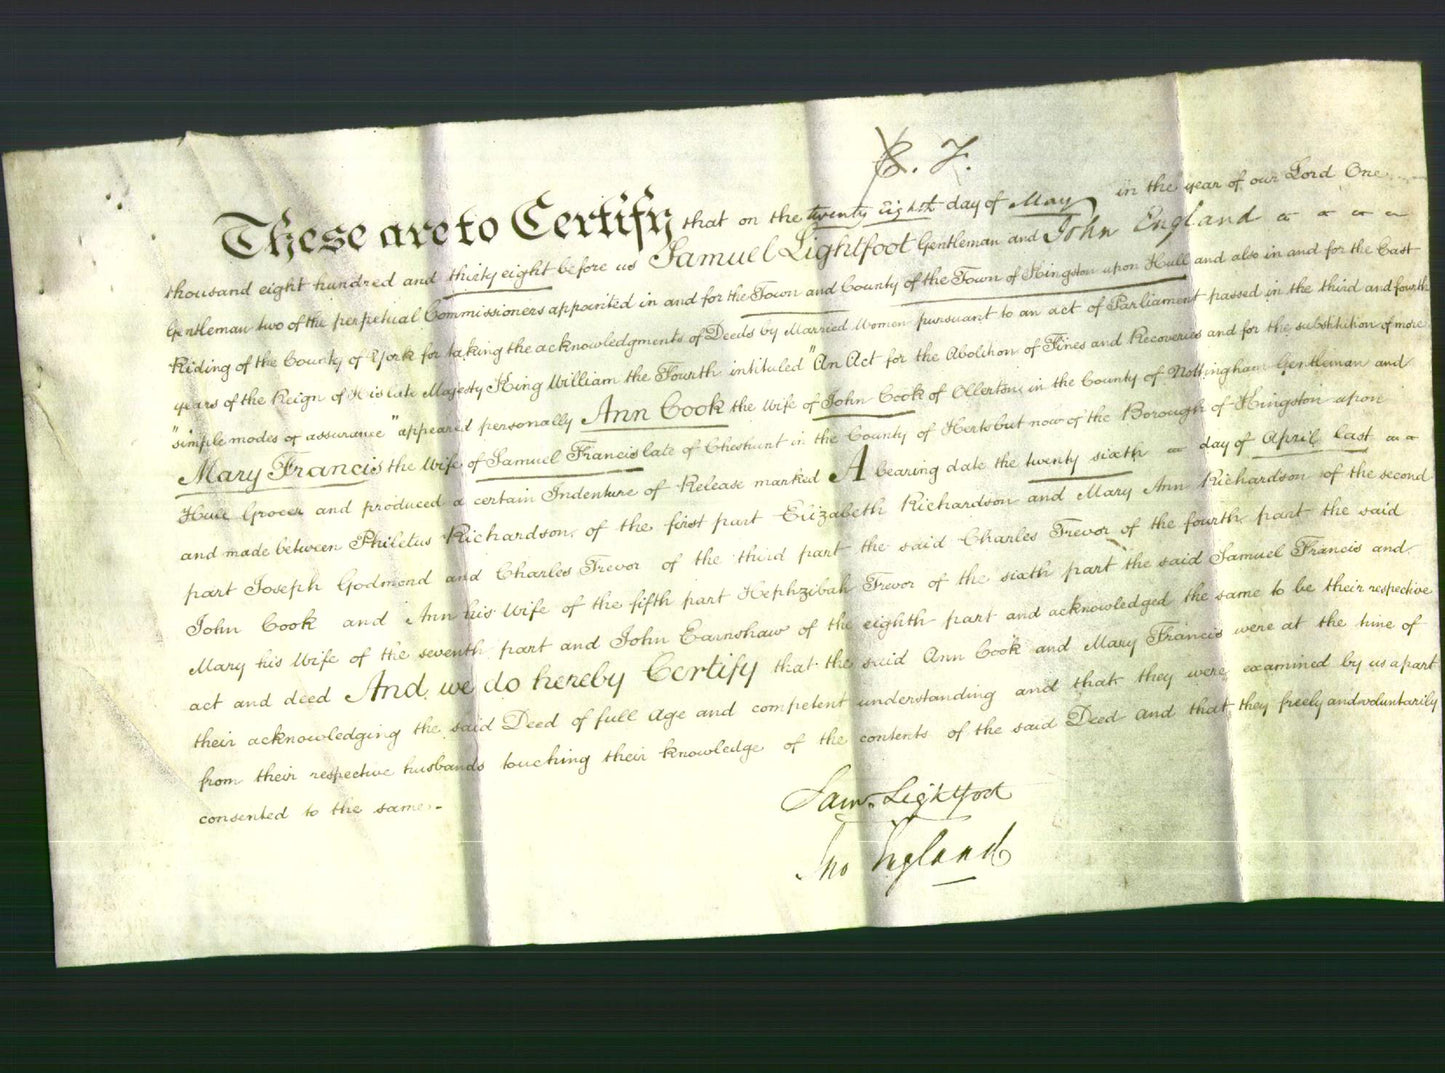 B. F.
These are to Certify that on the twenty eighth day of May in the year of our Lord One
thousand eight hundred and thirty eight before us Samuel Lightfoot Gentleman and John England
Gentleman two of the perpetual Commissioners appointed in and for the Town and County of the Town of Kingston upon Hull and also in and for the East
Riding of the County of York for taking the acknowledgments of Deeds by Married Women pursuant to an act of Parliament passed in the third and fourth
years of the Reign of His late Majesty King William the Fourth intituled "An Act for the Abolition of Fines and Recoveries and for the substitution of more
"simple modes of assurance" appeared personally Ann Cook the Wife of John Cook of Ollerton in the County of Nottingham Gentleman and
Mary Francis the Wife of Samuel Francis late of Cheshunt in the County of Herts but now of the Borough of Kingston upon
Hull Grocer and produced a certain Indenture of Release marked A bearing date the twenty sixth day of April last
and made between Philetus Richardson of the first part Elizabeth Richardson and Mary Ann Richardson of the second
part Joseph Godmond and Charles Trevor of the third part the said Charles Trevor of the fourth part the said
John Cook and Ann his Wife of the fifth part Hephzibah Trevor of the sixth part the said Samuel Francis and
Mary his Wife of the seventh part and John Earnshaw of the eighth part and acknowledged the same to be their respective
act and deed And we do hereby Certify that the said Ann Cook and Mary Francis were at the time of
their acknowledging the said Deed of full Age and competent understanding and that they were examined by us apart
from their respective husbands touching their knowledge of the contents of the said Deed and that they freely and voluntarily
consented to the same.-
Sam. Lightfoot
Jno England